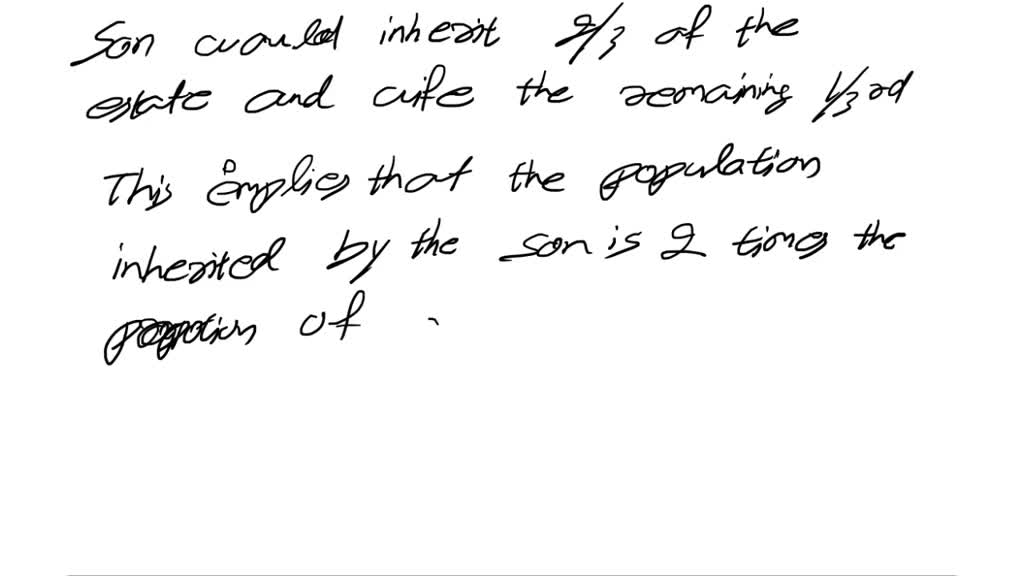 Son would inherit 2/3 of the
estate and wife the remaining 1/3 rd
This implies that the population
inherited by the son is 2 times the
of